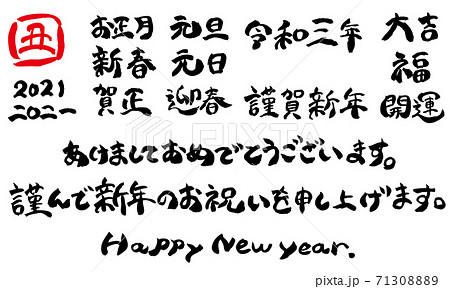 丑
2021
二〇二一
お正月
新春
賀正
元旦
元日
迎春
令和三年
謹賀新年
大吉
福
開運
あけましておめでとうございます。
謹んで新年のお祝いを申し上げます。
Happy New year.
PIXTA
pixta.jp - 71308889